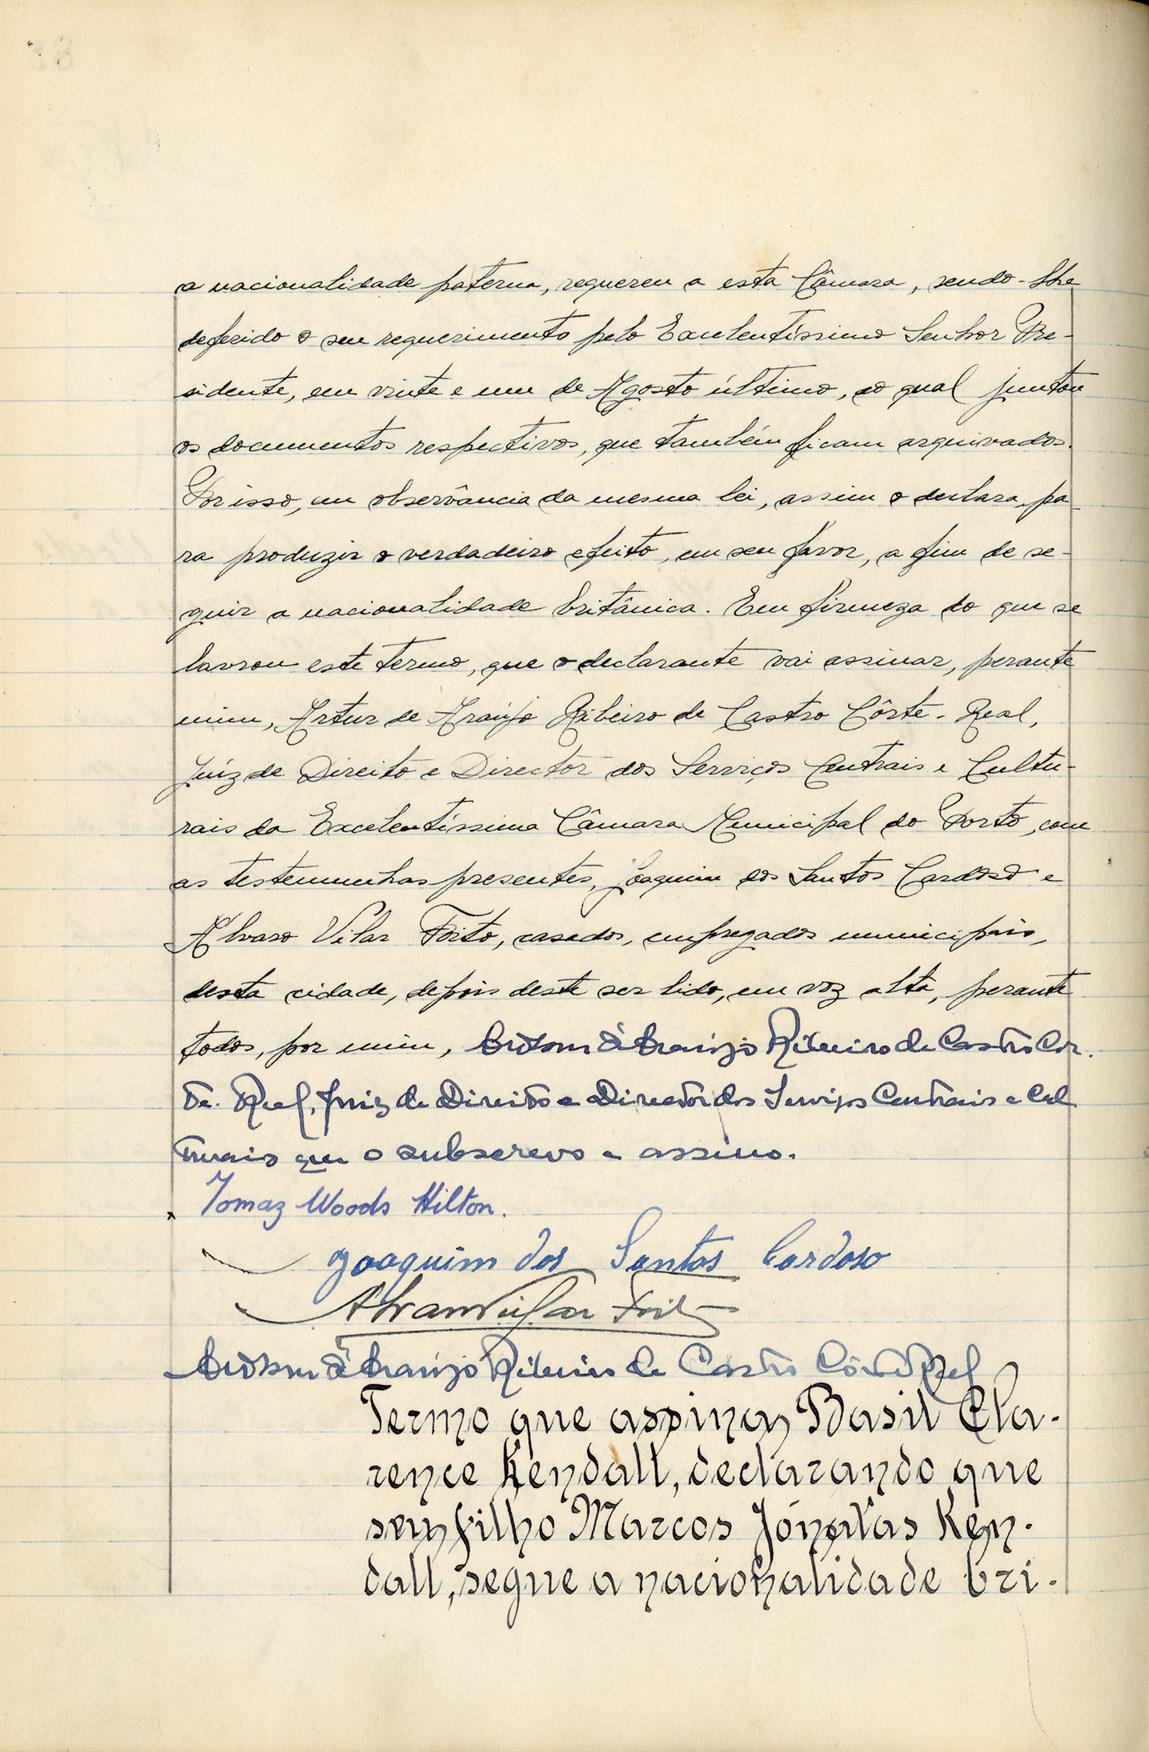 a nacionalidade paterna, requereu a esta Câmara, sendo-lhe
deferido o seu requerimento pelo Excelentíssimo Senhor Pre-
sidente, em vinte e um de Agosto último, ao qual juntou
os documentos respectivos, que também ficam arquivados.
Por isso, em observância da mesma lei, assim o declara, pa-
ra produzir o verdadeiro efeito, em seu favor, a fim de se-
guir a nacionalidade britânica. Em firmeza do que se
lavrou este termo, que o declarante vai assinar, perante
mim, Artur de Araújo Ribeiro de Castro Côrte-Real,
Juíz de Direito e Director dos Serviços Centrais e Cultu-
rais da Excelentíssima Câmara Municipal do Porto, com
as testemunhas presentes, Joaquim dos Santos Cardoso e
Álvaro Vilar Forto, casados, empregados municipais,
desta cidade, depois deste ser lido, em voz alta, perante
todos, por mim, Artur de Araujo Ribeiro de Castro Cor-
te-Real, Juiz de Direito e Director dos Serviços Centrais e Cul
turais que o subscrevo e assino.
Tomaz Woods Hilton.
Joaquim dos Santos Cardoso
Alvaro Vilar
Artur de Araujo Ribeiro de Castro Côrte Real
Termo que assina, Basil Cla-
rence Kendall, declarando que
seu filho Marcos Jónatas Ken-
dall, segue a nacionalidade bri-